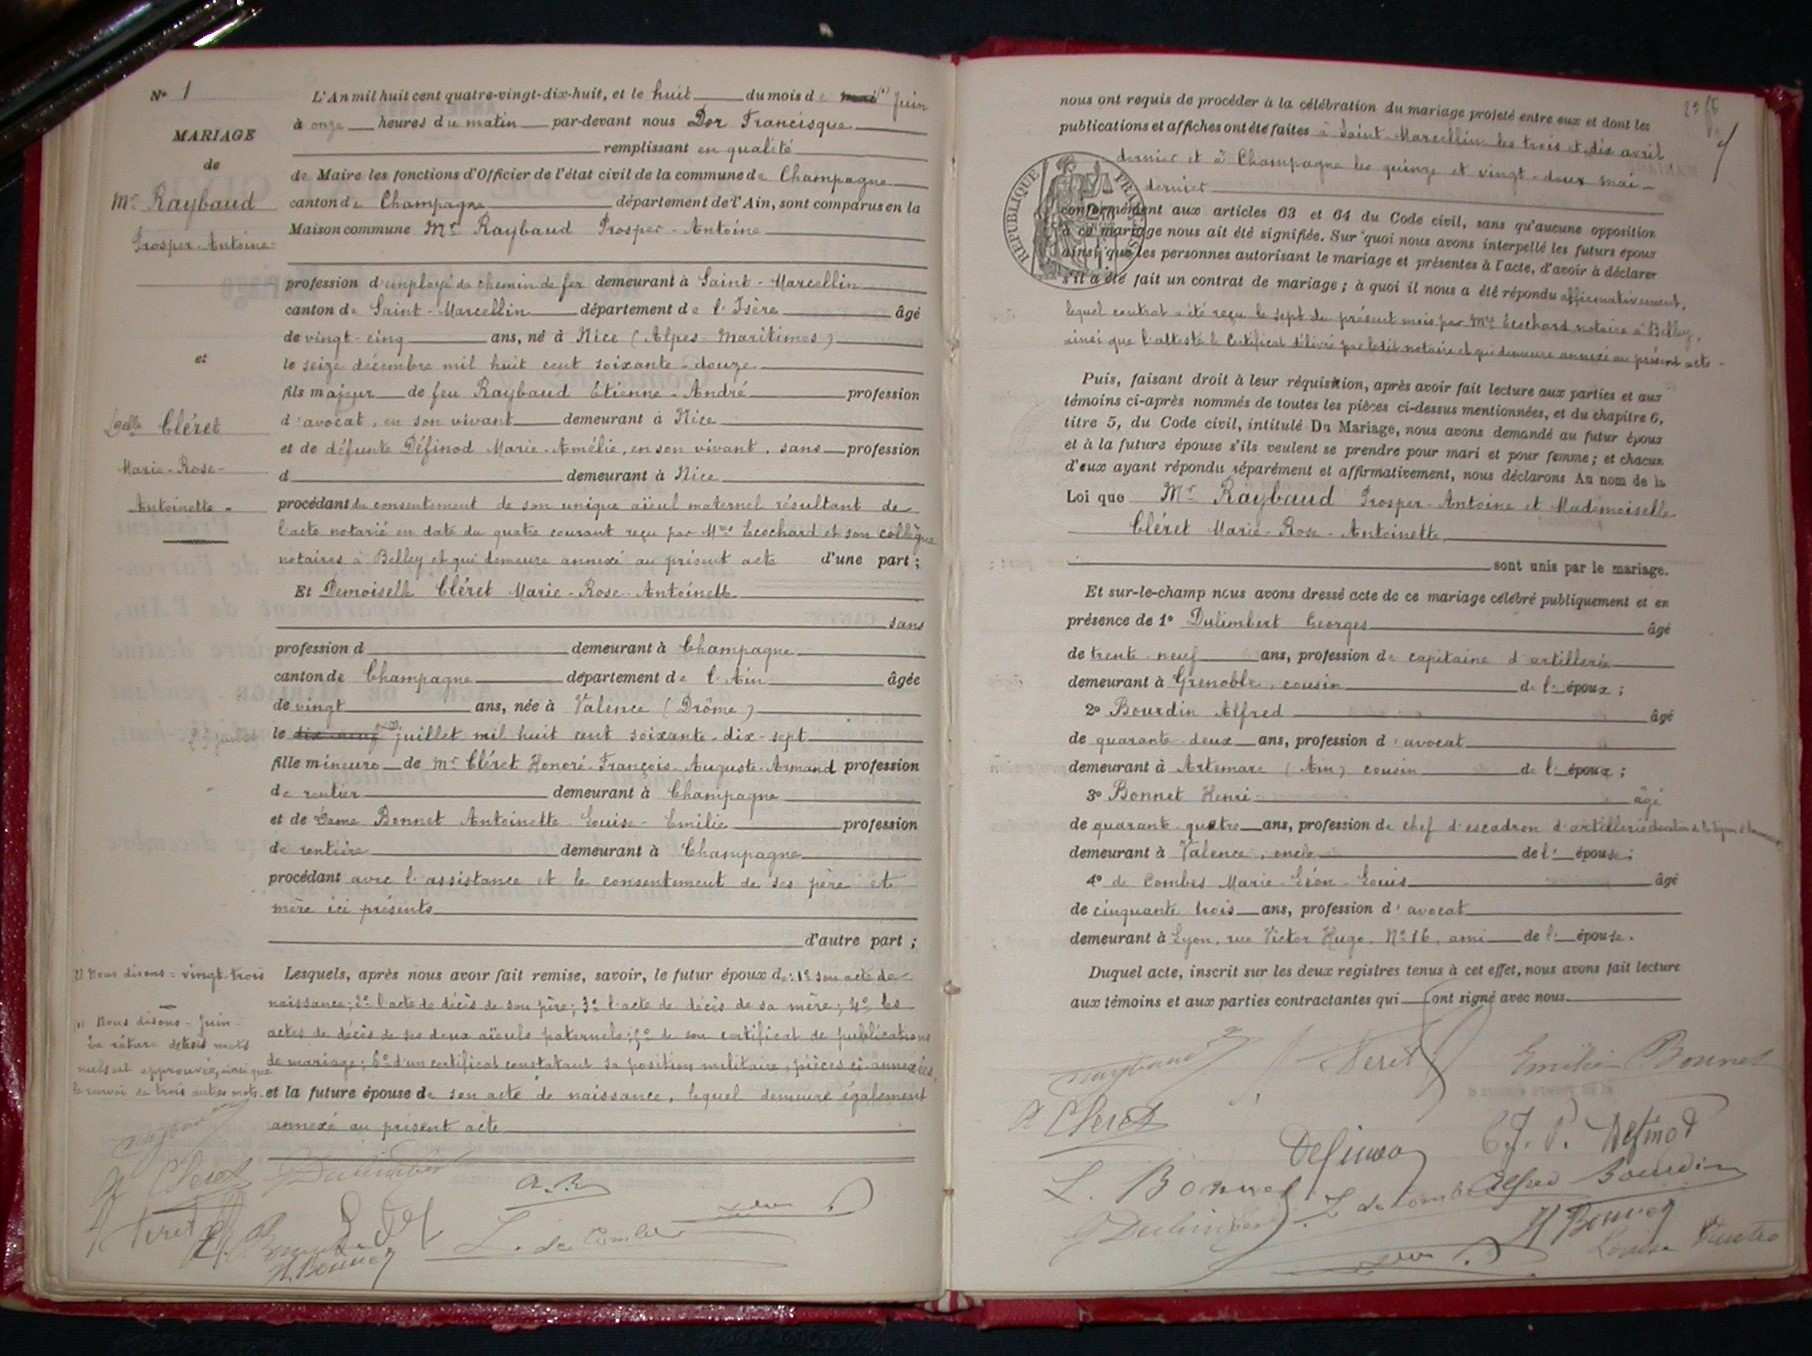 N° 1
MARIAGE
de
Mr Raybaud
Prosper-Antoine
et
Delle Cléret
Marie-Rose-
Antoinette
L'An mil huit cent quatre-vingt-dix-huit, et le huit du mois de mai (1) Juin
à onze heures du matin par-devant nous Dor Francisque
remplissant en qualité
de Maire les fonctions d'Officier de l'état civil de la commune de Champagne
canton de Champagne département de l'Ain, sont comparus en la
Maison commune Mr Raybaud Prosper-Antoine
profession d'employé de chemin de fer demeurant à Saint-Marcellin
canton de Saint-Marcellin département de l'Isère âgé
de vingt-cinq ans, né à Nice (Alpes-Maritimes)
le seize décembre mil huit cent soixante-douze
fils majeur de feu Raybaud Etienne-André profession
d'avocat, en son vivant demeurant à Nice
et de défunte Définod Marie-Amélie, en son vivant, sans profession
d demeurant à Nice
procédant du consentement de son unique aïeul maternel résultant de
l'acte notarié en date du quatre courant reçu par Mtres Ecochard et son collègue
notaires à Belley et qui demeure annexé au présent acte d'une part;
Et Demoiselle Cléret Marie-Rose-Antoinette
sans
profession d demeurant à Champagne
canton de Champagne département de l'Ain âgée
de vingt ans, née à Valence (Drôme)
le dix-neuf juillet mil huit cent soixante-dix-sept
fille mineure de Mr Cléret Honoré-François-Auguste-Armand profession
de rentier demeurant à Champagne
et de Dame Bonnet Antoinette-Louise-Emilie profession
de rentière demeurant à Champagne
procédant avec l'assistance et le consentement de ses père et
mère ici présents
d'autre part;
Lesquels, après nous avoir fait remise, savoir, le futur époux de: 1° son acte de
naissance; 2° l'acte de décès de son père; 3° l'acte de décès de sa mère; 4° les
actes de décès de ses deux aïeuls paternels; 5° de son certificat de publications
de mariage; 6° d'un certificat constatant sa position militaire, pièces ci-annexées,
et la future épouse de son acte de naissance, lequel demeure également
annexé au présent acte
(2) Nous disons: vingt-trois
(1) Nous disons - Juin -
La rature de trois mots
nuls est approuvée, ainsi que
le renvoi de trois autres mots.
Raybaud
A Cleret
G Dulimbert
A. B.
L. de Combes
H. Bonnet
nous ont requis de procéder à la célébration du mariage projeté entre eux et dont les
publications et affiches ont été faites à Saint-Marcellin les trois et dix avril
dernier et à Champagne les quinze et vingt-deux mai
dernier
RÉPUBLIQUE FRANÇAISE
conformément aux articles 63 et 64 du Code civil, sans qu'aucune opposition
à ce mariage nous ait été signifiée. Sur quoi nous avons interpellé les futurs époux
ainsi que les personnes autorisant le mariage et présentes à l'acte, d'avoir à déclarer
s'il a été fait un contrat de mariage; à quoi il nous a été répondu affirmativement,
lequel contrat a été reçu le sept du présent mois par Mtre Ecochard notaire à Belley,
ainsi que l'atteste le certificat délivré par ledit notaire et qui demeure annexé au présent acte
Puis, faisant droit à leur réquisition, après avoir fait lecture aux parties et aux
témoins ci-après nommés de toutes les pièces ci-dessus mentionnées, et du chapitre 6,
titre 5, du Code civil, intitulé Du Mariage, nous avons demandé au futur époux
et à la future épouse s'ils veulent se prendre pour mari et pour femme; et chacun
d'eux ayant répondu séparément et affirmativement, nous déclarons Au nom de la
Loi que Mr Raybaud Prosper-Antoine et Mademoiselle
Cléret Marie-Rose-Antoinette
sont unis par le mariage.
Et sur-le-champ nous avons dressé acte de ce mariage célébré publiquement et en
présence de 1° Dulimbert Georges âgé
de trente-neuf ans, profession de capitaine d'artillerie
demeurant à Grenoble, cousin de l' époux;
2° Bourdin Alfred âgé
de quarante-deux ans, profession d'avocat
demeurant à Artemare (Ain) cousin de l' époux;
3° Bonnet Henri âgé
de quarante-quatre ans, profession de chef d'escadron d'artillerie
demeurant à Valence, oncle de l' épouse;
4° de Combes Marie-Léon-Louis âgé
de cinquante-trois ans, profession d'avocat
demeurant à Lyon, rue Victor Hugo, N° 16, ami de l' épouse.
Duquel acte, inscrit sur les deux registres tenus à cet effet, nous avons fait lecture
aux témoins et aux parties contractantes qui ont signé avec nous.
Raybaud
Emilie Bonnet
A Cleret
Definod
C. J. P. Definod
L. Bonnet
L. de Combes
Alfred Bourdin
G Dulimbert
H Bonnet